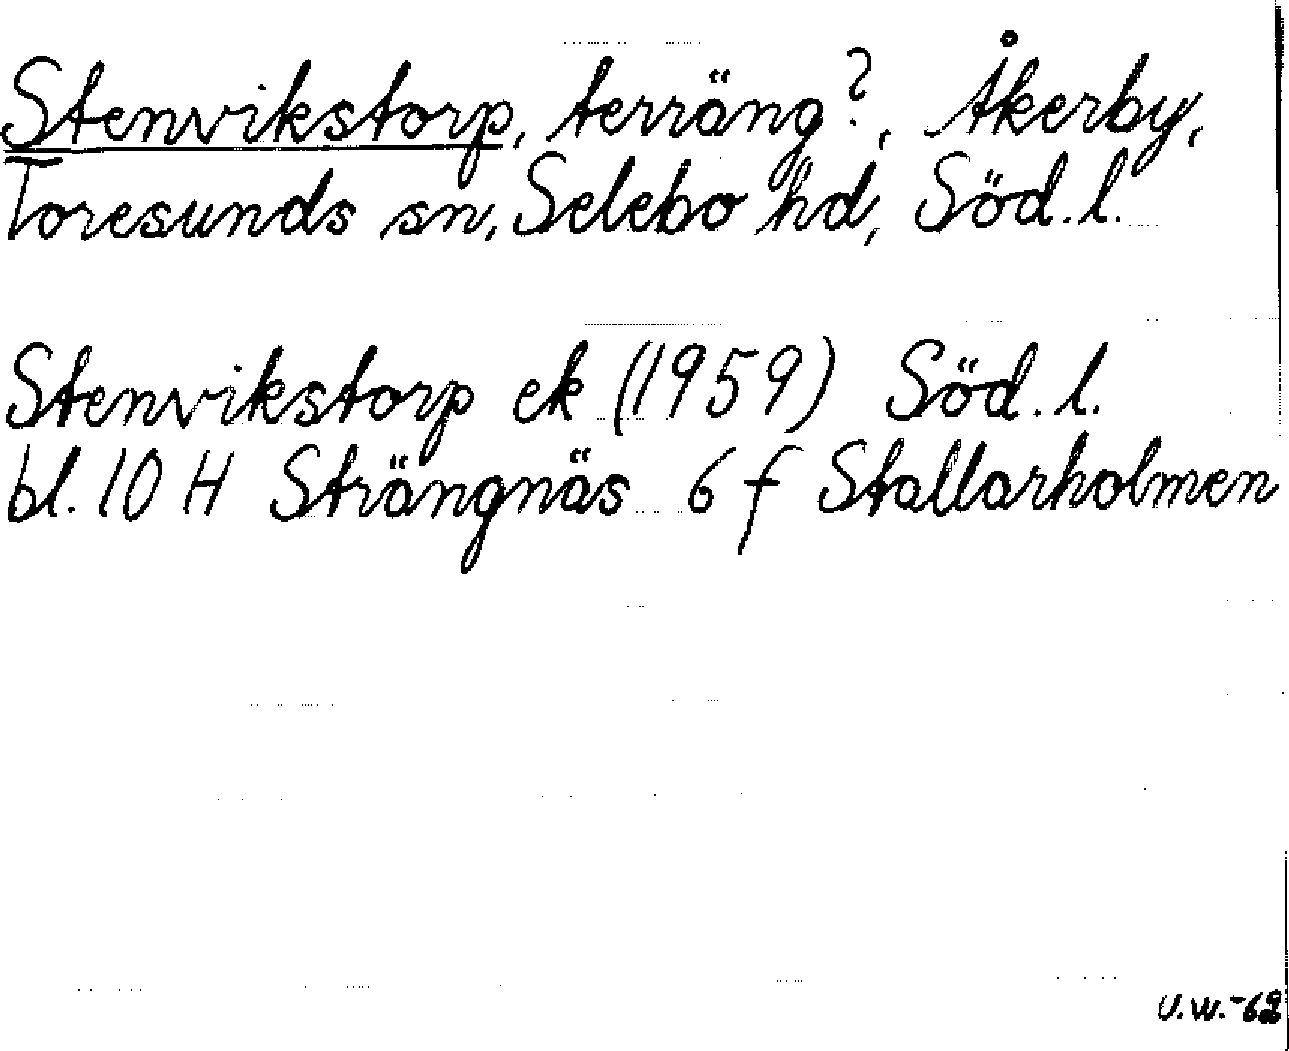 Stenvikstorp, terräng?, Åkerby,
Toresunds sn, Selebo hd, Söd. l.
Stenvikstorp ek (1959) Söd. l.
bl. 10 H Strängnäs 6 f Stallarholmen
U.W.-62